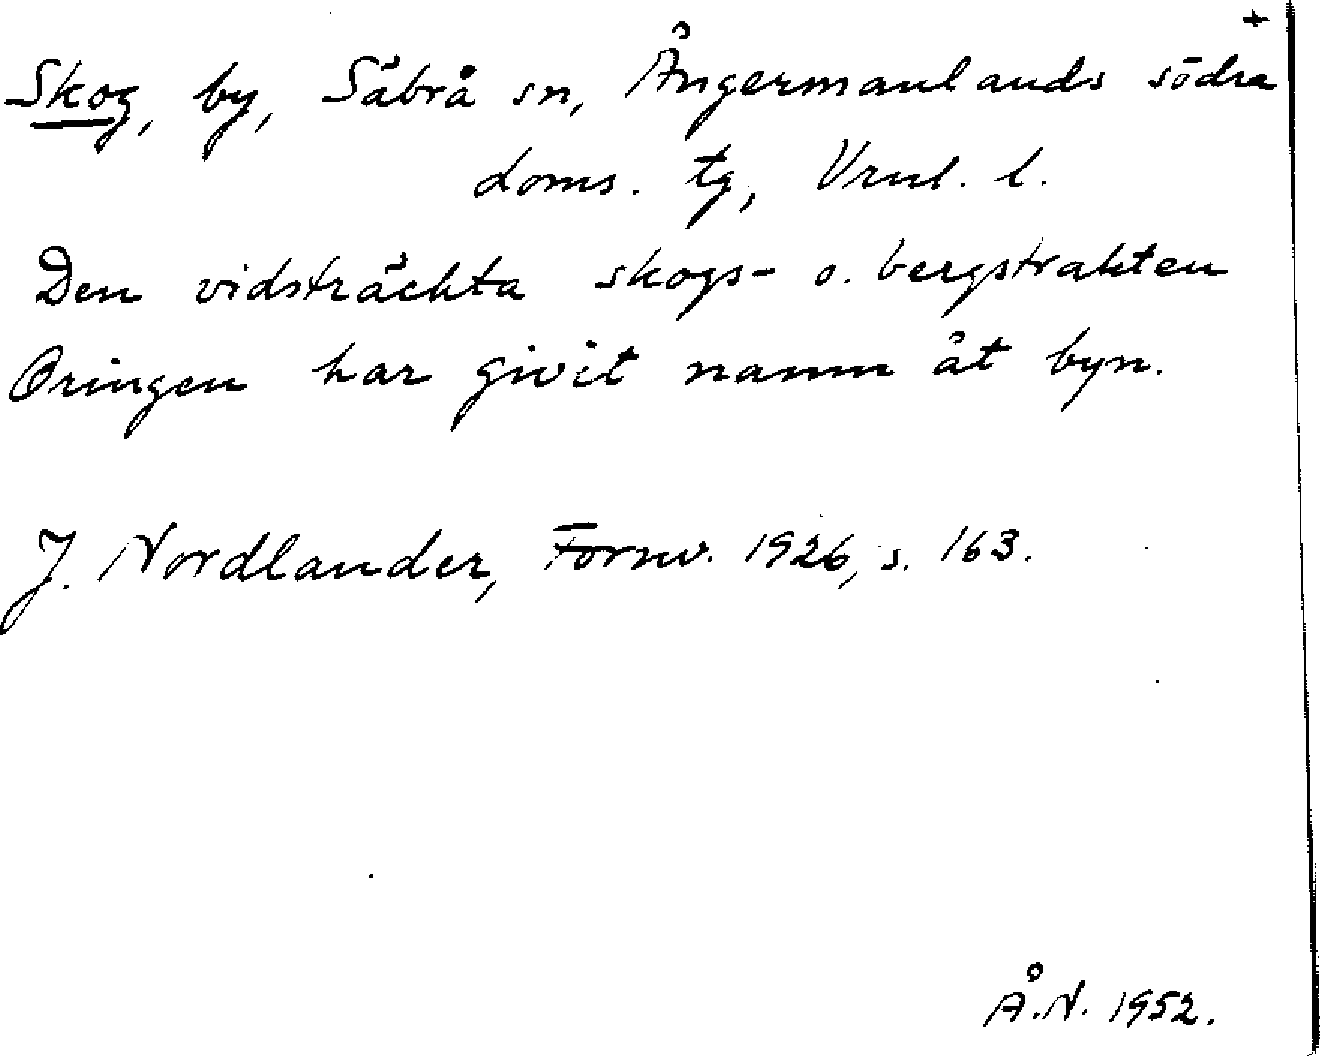 +
Skog, by, Säbrå sn, Ångermanlands södra
doms. tg, Vrnl. l.
Den vidsträckta skogs- o. bergstrakten
Oringen har givit namn åt byn.
J. Nordlander, Fornv. 1926, s. 163.
Å.N. 1952.